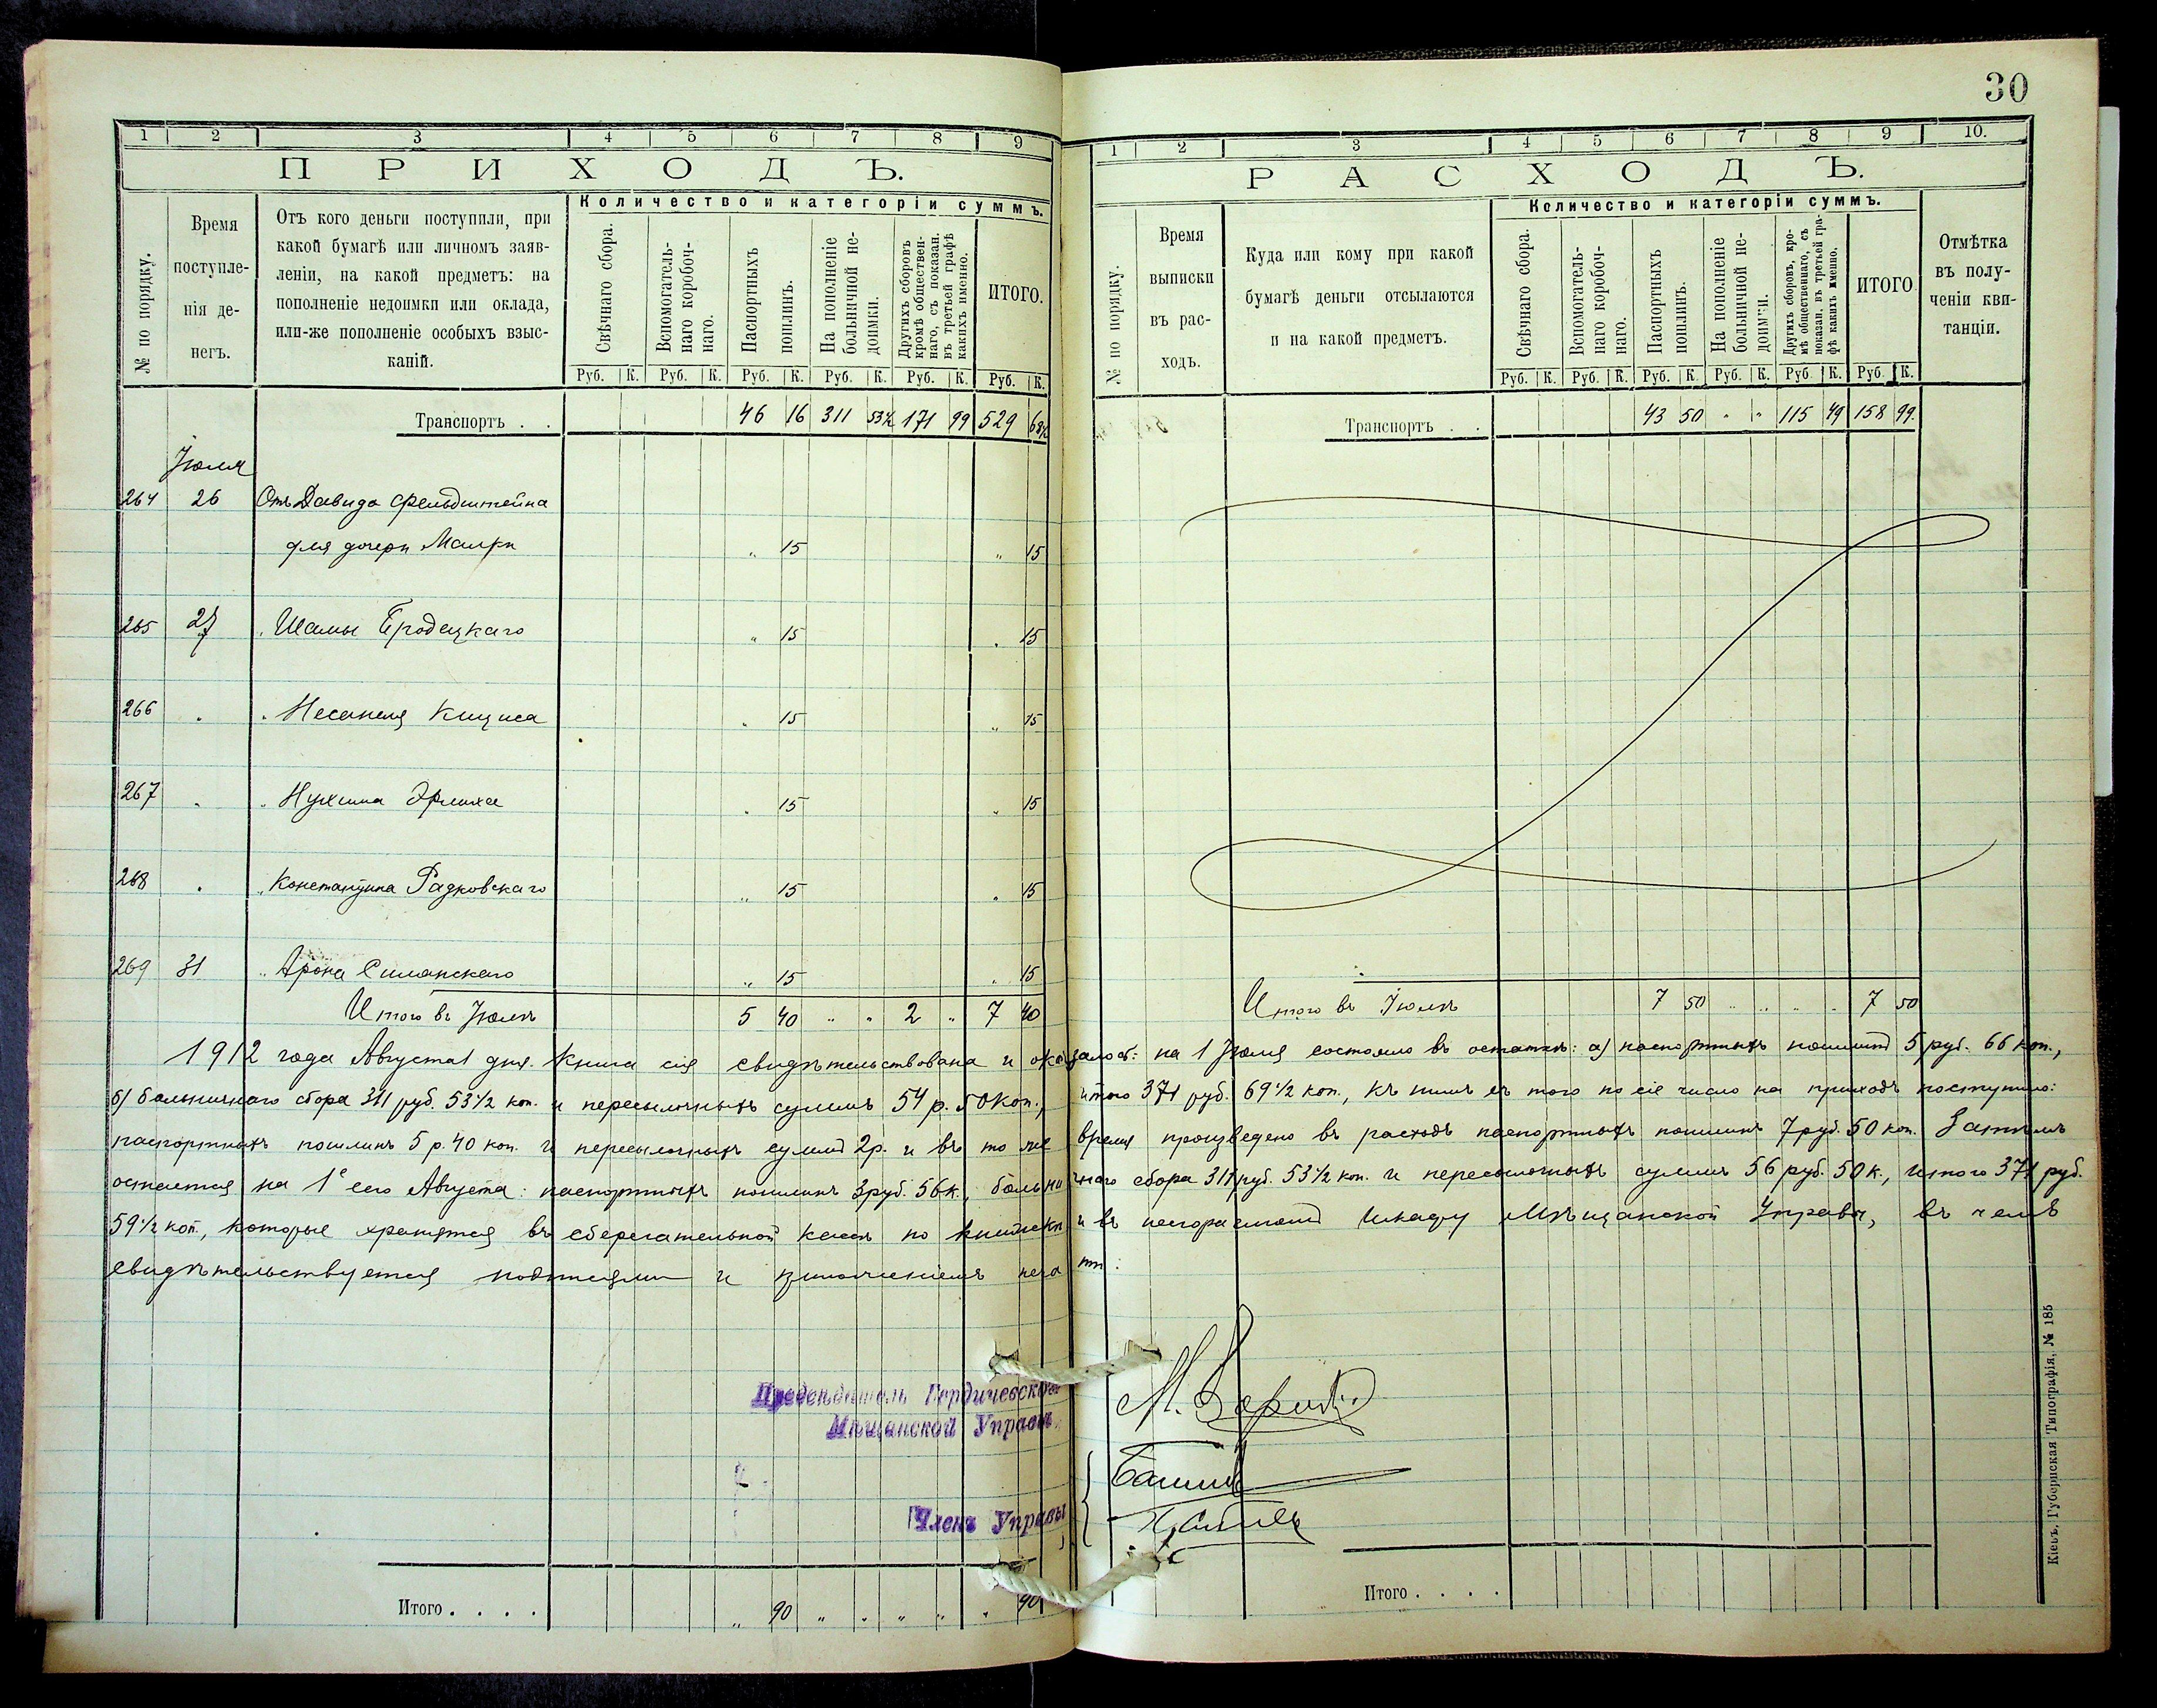 30
1 2 3 4 5 6 7 8 9
ПРИХОДЪ.
№ по порядку.
Время поступле-
нія де-
негъ.
Отъ кого деньги поступили, при
какой бумагѣ или личномъ заяв-
леніи, на какой предметъ: на
пополненіе недоимки или оклада,
или-же пополненіе особыхъ взыс-
каній.
Количество и категоріи суммъ.
Свѣчнаго сбора.
Вспомогатель-
наго коробоч-
наго.
Паспортныхъ
пошлинъ.
На пополненіе
больничной не-
доимки.
Другихъ сборовъ
кромѣ обществен-
наго, съ показан.
въ третьей графѣ
какихъ именно.
ИТОГО.
Руб. К. Руб. К. Руб. К. Руб. К. Руб. К. Руб. К.
Транспортъ . . 46 16 311 53½ 171 99 529 68½
Іюля
264 26 Отъ Давида Фельдштейна
для дочери Малки „ 15 „ 15
265 27 „ Шамы Бродецкаго „ 15 „ 15
266 „ „ Несанеля Кициса „ 15 „ 15
267 „ „ Нухима Эрлиха „ 15 „ 15
268 „ „ Константина Радковскаго „ 15 „ 15
269 31 „ Арона Силанскаго „ 15 „ 15
Итого въ Іюлѣ 5 40 „ „ 2 „ 7 40
1 2 3 4 5 6 7 8 9 10.
РАСХОДЪ.
№ по порядку.
Время
выписки
въ рас-
ходъ.
Куда или кому при какой
бумагѣ деньги отсылаются
и на какой предметъ.
Количество и категоріи суммъ.
Свѣчнаго сбора.
Вспомогатель-
наго коробоч-
наго.
Паспортныхъ
пошлинъ.
На пополненіе
больничной не-
доимки.
Другихъ сборовъ, кро-
мѣ общественнаго, съ
показан. въ третьей гра-
фѣ какихъ именно.
ИТОГО.
Отмѣтка
въ полу-
ченіи кви-
танціи.
Руб. К. Руб. К. Руб. К. Руб. К. Руб. К. Руб. К.
Транспортъ . . 43 50 „ „ 115 49 158 99.
Итого въ Іюлѣ 7 50 „ „ „ „ 7 50
1912 года Августа 1 дня. Книга сія свидѣтельствована и оказалось: на 1 Іюля состояло въ остаткѣ: а) паспортныхъ пошлинъ 5 руб. 66 коп.,
б) больничнаго сбора 311 руб. 53 1/2 коп. и пересылочныхъ суммъ 54 р. 50 коп., итого 371 руб. 69 1/2 коп., къ нимъ съ того по сіе число на приходъ поступило:
паспортныхъ пошлинъ 5 р. 40 коп. и пересылочныхъ суммъ 2 р. и въ то же время произведено въ расходъ паспортныхъ пошлинъ 7 руб. 50 коп. Затѣмъ
остается на 1е сего Августа: паспортныхъ пошлинъ 3 руб. 56 к., больничнаго сбора 311 руб. 53 1/2 коп. и пересылочныхъ суммъ 56 руб. 50 к., итого 371 руб.
59 1/2 коп., которые хранятся въ сберегательной кассѣ по книжкѣ и въ несгораемомъ шкафу Мѣщанской Управы, въ чемъ
свидѣтельствуется подписями и приложеніемъ печати:
Предсѣдатель Бердичевской
Мѣщанской Управы
Членъ Управы
Итого . . . . „ 90 „ „ „ „ „ 90
Итого . . . .
Кіевъ, Губернская Типографія, № 185